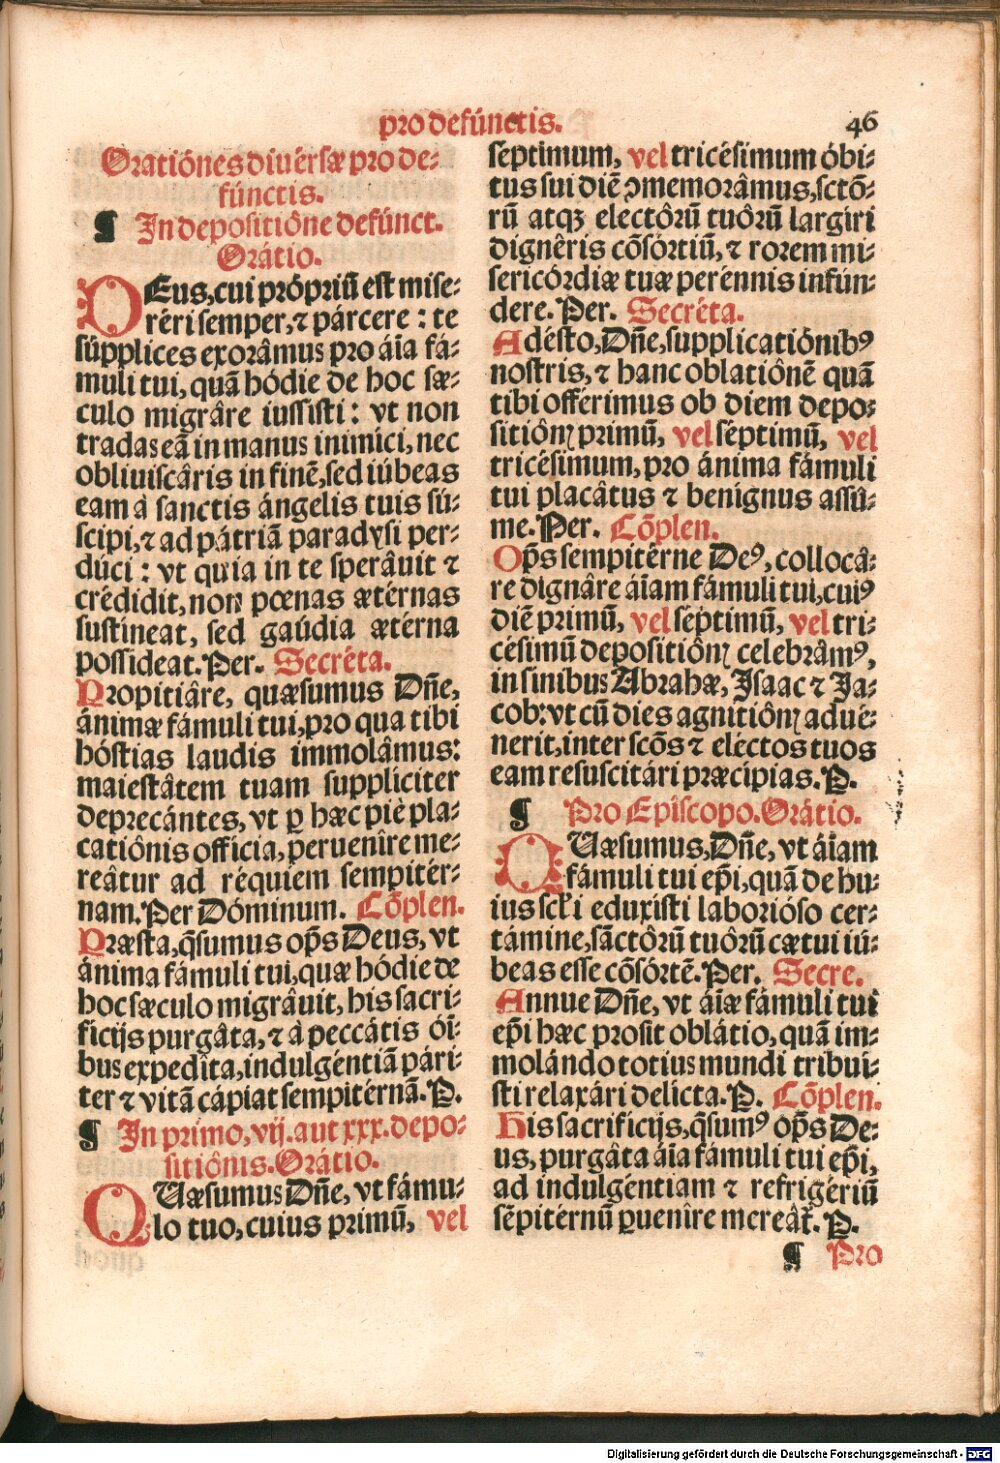 pro defúnctis. 46
Oratiónes diuérsæ pro de-
fúnctis.
¶ In depositiône defúnct.
Orátio.
DEus, cui própriũ est mise-
réri semper, ⁊ párcere : te
súpplices exorâmus pro áĩa fá-
muli tui, quã hódie de hoc sæ-
culo migrâre iussisti : vt non
tradas eã in manus inimíci, nec
obliuiscâris in finẽ, sed iúbeas
eam à sanctis ángelis tuis sú-
scipi, ⁊ ad pátriã paradysi per-
dúci : vt quia in te sperâuit ⁊
crédidit, non pœnas ætérnas
sustineat, sed gaúdia ætérna
possideat. Per. Secréta.
Propitiâre, quæsumus Dñe,
ánimæ fámuli tui, pro qua tibi
hóstias laudis immolâmus:
maiestâtem tuam supplíciter
deprecántes, vt ꝑ hæc piè pla-
catiônis officia, peruenîre me-
reâtur ad réquiem sempitér-
nam. Per Dóminum. Cõplen.
Præsta, q̃sumus op̃s Deus, vt
ánima fámuli tui, quæ hódie de
hoc sæculo migrâuit, his sacri-
ficijs purgâta, ⁊ à peccátis óĩ-
bus expedîta, indulgéntiã pári-
ter ⁊ vitã cápiat sempitérnã. P.
¶ In primo, vij. aut xxx. depo-
sitiônis. Orátio.
QUæsumus Dñe, vt fámu-
lo tuo, cuius primũ, vel
septimum, vel tricésimum óbi-
tus sui diẽ ꝯmemorâmus, sctõ-
rũ atqꝫ electôrũ tuôrũ largíri
dignêris cõsórtiũ, ⁊ rorem mi-
sericórdiæ tuæ perénnis infún-
dere. Per. Secréta.
Adésto, Dñe, supplicatiónibꝰ
nostris, ⁊ hanc oblatiônẽ quã
tibi offerimus ob diem depo-
sitiônꝭ primũ, vel séptimũ, vel
tricésimum, pro ánima fámuli
tui placâtus ⁊ benignus assú-
me. Per. Cõplen.
Op̃s sempitérne Deꝰ, collocâ-
re dignâre áĩam fámuli tui, cuiꝰ
diẽ primũ, vel séptimũ, vel tri-
césimũ depositiônꝭ celebrâmꝰ,
in sinibus Abrahæ, Isaac ⁊ Ja-
cob: vt cũ dies agnitiônꝭ adué-
nerit, inter scõs ⁊ eléctos tuos
eam resuscitári præcípias. P.
¶ Pro Episcopo. Orátio.
QUæsumus, Dñe, vt áĩam
fámuli tui ep̃i, quã de hu-
ius scƚi eduxisti laborióso cer-
támine, sãctôrũ tuôrũ cætui iú-
beas esse cõsórtẽ. Per. Secre.
Annue Dñe, vt áĩæ fámuli tui
ep̃i hæc prosit oblátio, quã im-
molándo totius mundi tribui-
sti relaxári delícta. P. Cõplen.
His sacrificijs, q̃sumꝰ op̃s De-
us, purgâta áĩa fámuli tui ep̃i,
ad indulgéntiam ⁊ refrigériũ
sẽpitérnũ ꝑuenîre mereâť. P.
¶ Pro
Digitalisierung gefördert durch die Deutsche Forschungsgemeinschaft - DFG